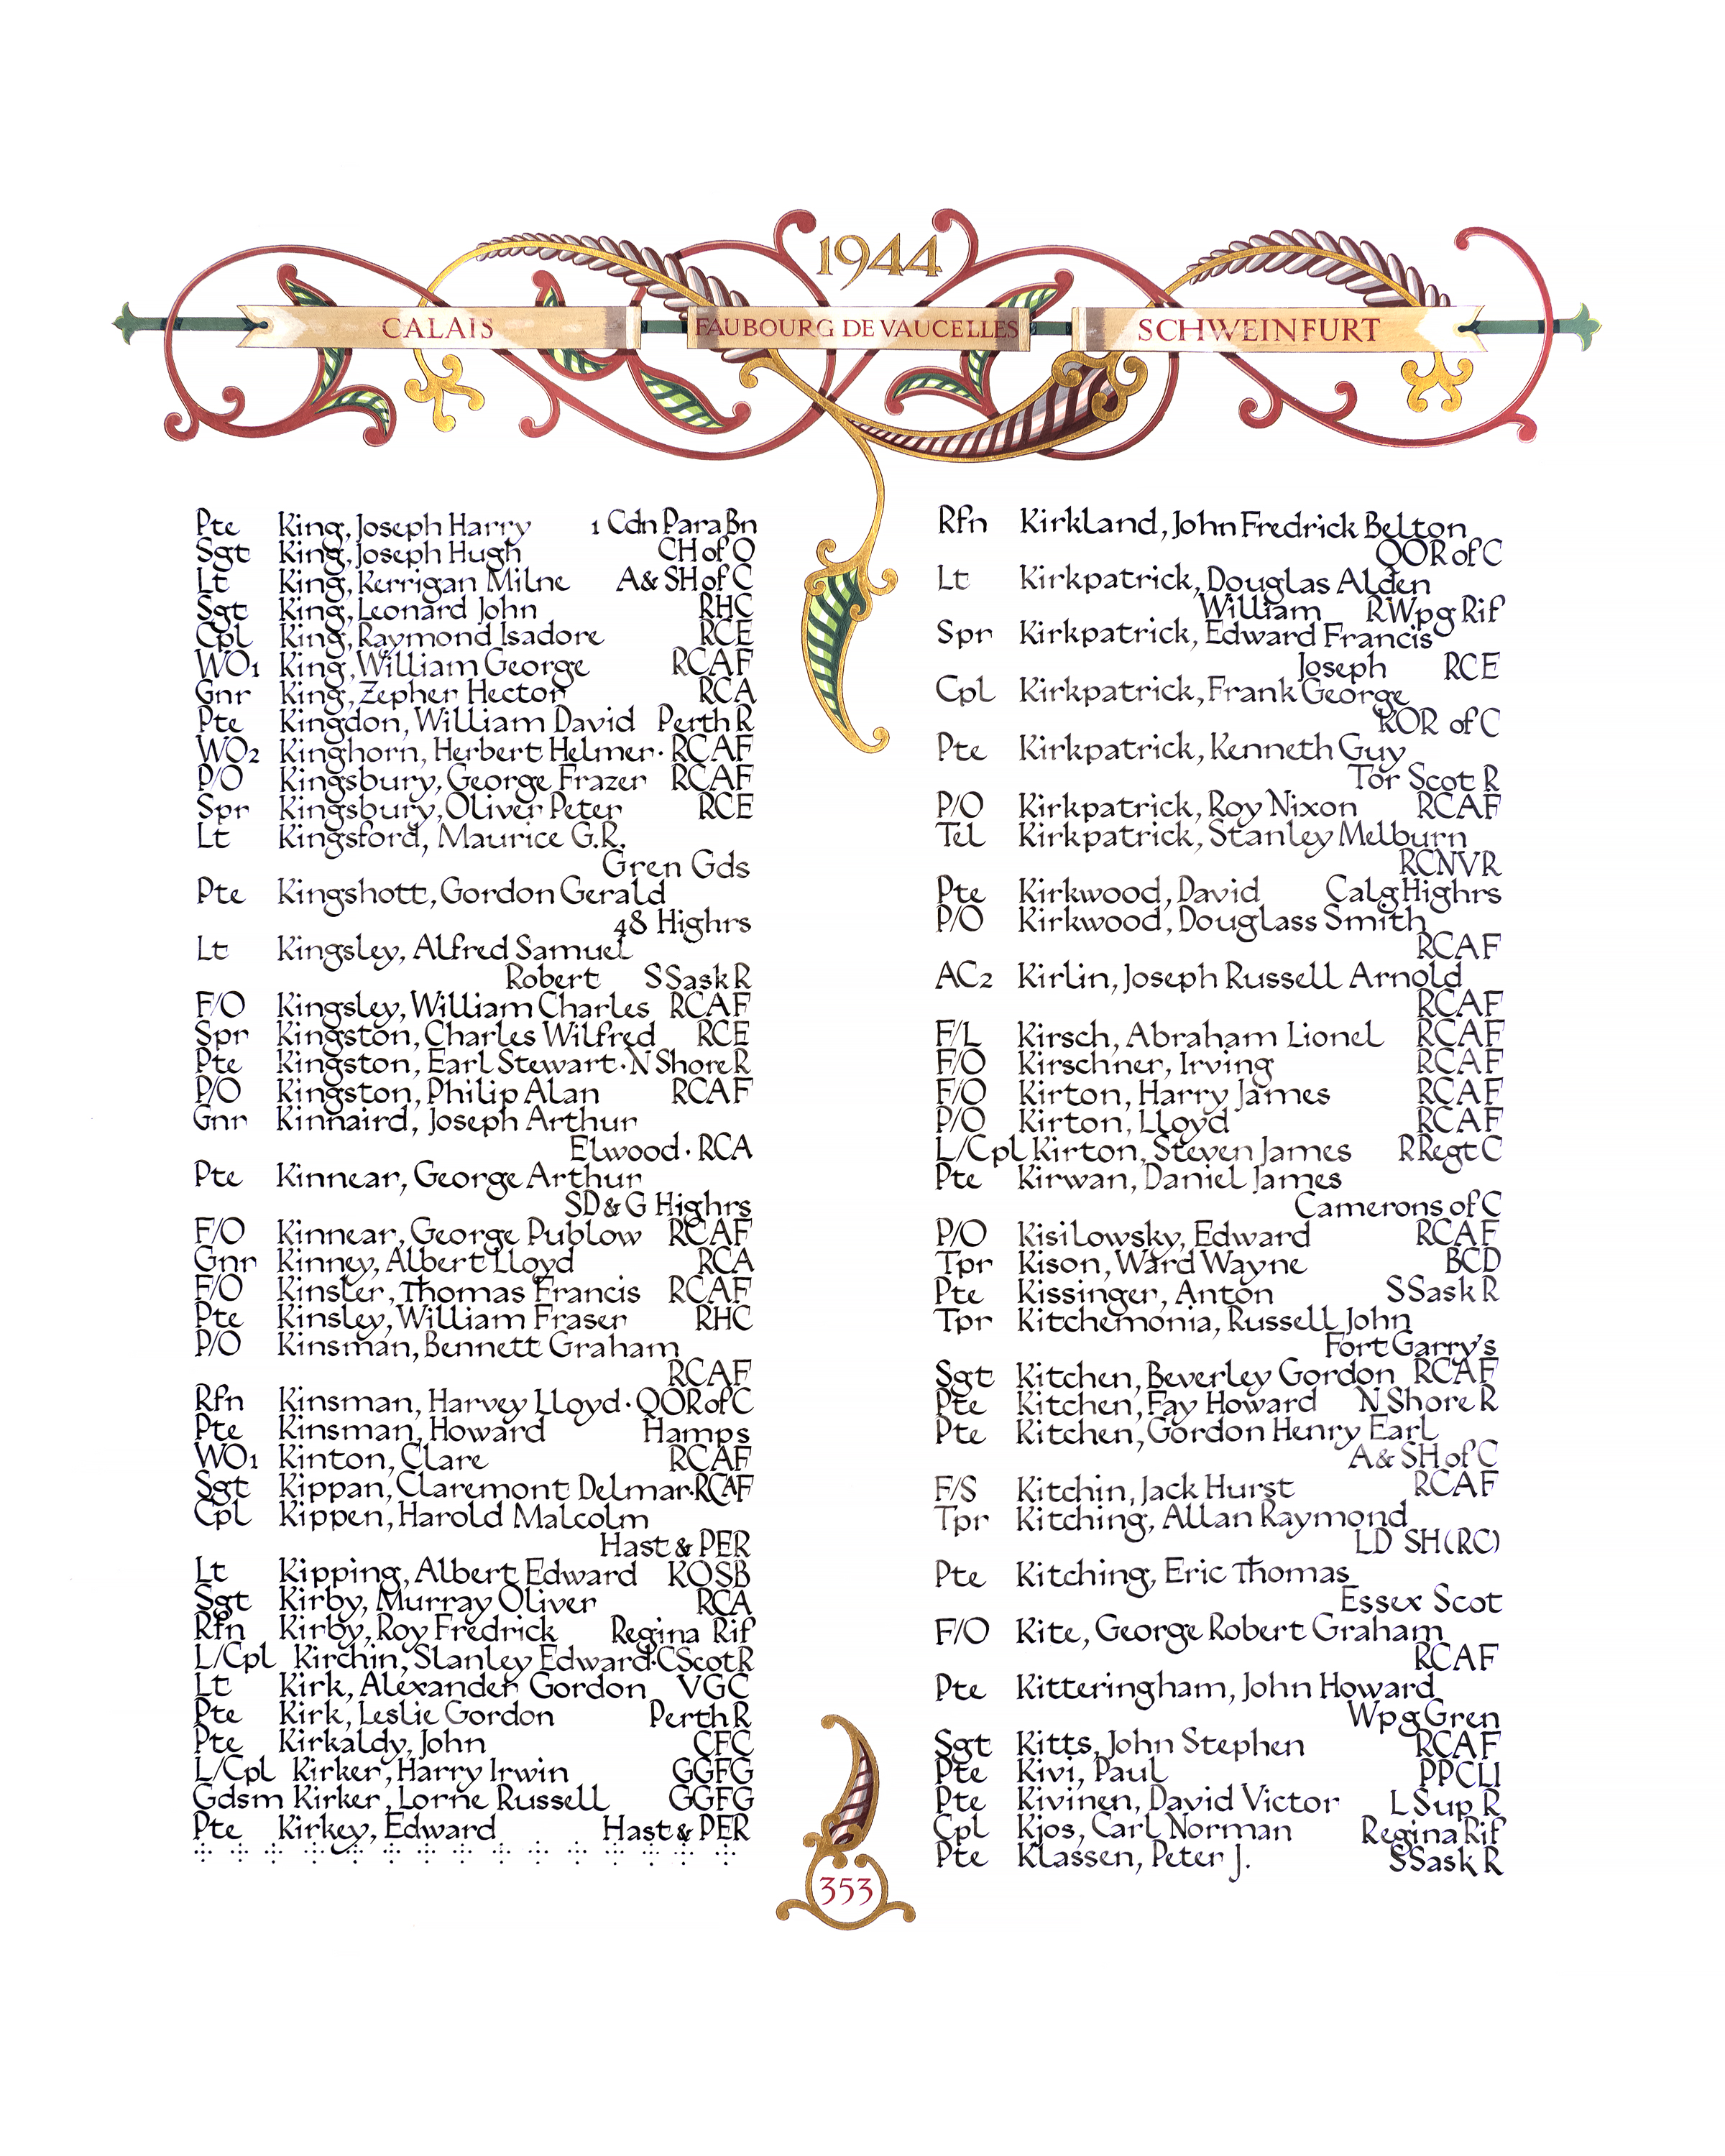 1944
CALAIS
FAUBOURG DE VAUCELLES
SCHWEINFURT
Pte King, Joseph Harry 1 Cdn Para Bn
Sgt King, Joseph Hugh CH of O
Lt King, Kerrigan Milne A & SH of C
Sgt King, Leonard John RHC
Cpl King, Raymond Isadore RCE
WO1 King, William George RCAF
Gnr King, Zepher Hector RCA
Pte Kingdon, William David Perth R
WO2 Kinghorn, Herbert Helmer · RCAF
P/O Kingsbury, George Frazer RCAF
Spr Kingsbury, Oliver Peter RCE
Lt Kingsford, Maurice G.R.
Gren Gds
Pte Kingshott, Gordon Gerald
48 Highrs
Lt Kingsley, Alfred Samuel
Robert S Sask R
F/O Kingsley, William Charles RCAF
Spr Kingston, Charles Wilfred RCE
Pte Kingston, Earl Stewart · N Shore R
P/O Kingston, Philip Alan RCAF
Gnr Kinnaird, Joseph Arthur
Elwood · RCA
Pte Kinnear, George Arthur
SD & G Highrs
F/O Kinnear, George Publow RCAF
Gnr Kinney, Albert Lloyd RCA
F/O Kinsler, Thomas Francis RCAF
Pte Kinsley, William Fraser RHC
P/O Kinsman, Bennett Graham
RCAF
Rfn Kinsman, Harvey Lloyd · QOR of C
Pte Kinsman, Howard Hamps
WO1 Kinton, Clare RCAF
Sgt Kippan, Claremont Delmar · RCAF
Cpl Kippen, Harold Malcolm
Hast & PER
Lt Kipping, Albert Edward KOSB
Sgt Kirby, Murray Oliver RCA
Rfn Kirby, Roy Fredrick Regina Rif
L/Cpl Kirchin, Stanley Edward · C Scot R
Lt Kirk, Alexander Gordon VGC
Pte Kirk, Leslie Gordon Perth R
Pte Kirkaldy, John CFC
L/Cpl Kirker, Harry Irwin GGFG
Gdsm Kirker, Lorne Russell GGFG
Pte Kirkey, Edward Hast & PER
Rfn Kirkland, John Fredrick Belton
QOR of C
Lt Kirkpatrick, Douglas Alden
William R Wpg Rif
Spr Kirkpatrick, Edward Francis
Joseph RCE
Cpl Kirkpatrick, Frank George
ROR of C
Pte Kirkpatrick, Kenneth Guy
Tor Scot R
P/O Kirkpatrick, Roy Nixon RCAF
Tel Kirkpatrick, Stanley Melburn
RCNVR
Pte Kirkwood, David Calg Highrs
P/O Kirkwood, Douglass Smith
RCAF
AC2 Kirlin, Joseph Russell Arnold
RCAF
F/L Kirsch, Abraham Lionel RCAF
F/O Kirschner, Irving RCAF
F/O Kirton, Harry James RCAF
P/O Kirton, Lloyd RCAF
L/Cpl Kirton, Steven James R Regt C
Pte Kirwan, Daniel James
Camerons of C
P/O Kisilowsky, Edward RCAF
Tpr Kison, Ward Wayne BCD
Pte Kissinger, Anton S Sask R
Tpr Kitchemonia, Russell John
Fort Garry's
Sgt Kitchen, Beverley Gordon RCAF
Pte Kitchen, Fay Howard N Shore R
Pte Kitchen, Gordon Henry Earl
A & SH of C
F/S Kitchin, Jack Hurst RCAF
Tpr Kitching, Allan Raymond
LD SH (RC)
Pte Kitching, Eric Thomas
Essex Scot
F/O Kite, George Robert Graham
RCAF
Pte Kitteringham, John Howard
Wpg Gren
Sgt Kitts, John Stephen RCAF
Pte Kivi, Paul PPCLI
Pte Kivinen, David Victor L Sup R
Cpl Kjos, Carl Norman Regina Rif
Pte Klassen, Peter J. S Sask R
353